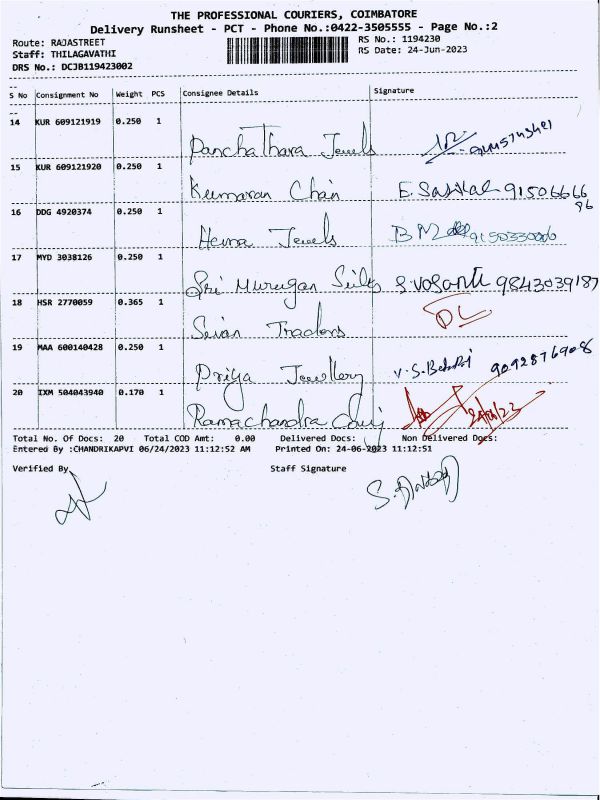 THE PROFESSIONAL COURIERS, COIMBATORE
Delivery Runsheet - PCT - Phone No.:0422-3505555 - Page No.:2
Route: RAJASTREET
RS No.: 1194230
Staff: THILAGAVATHI
RS Date: 24-Jun-2023
DRS No.: DCJB119423002
S No Consignment No Weight PCS Consignee Details Signature
14 KUR 609121919 0.250 1
Panchathara Jewels
15 KUR 609121920 0.250 1
Kumaran Chain 91506666
96
16 DDG 4920374 0.250 1
Hema Jewels BM 9150330000
17 MYD 3038126 0.250 1
Sri Murugan Silks S.vasanti 9843039187
18 HSR 2770059 0.365 1
DL
Traders
19 MAA 600140428 0.250 1
Priya Jewellery 9092876908
20 IXM 504043940 0.170 1
Ramachandra 24/06/23
Total No. Of Docs: 20 Total COD Amt: 0.00 Delivered Docs: Non Delivered Docs:
Entered By :CHANDRIKAPVI 06/24/2023 11:12:52 AM Printed On: 24-06-2023 11:12:51
Verified By Staff Signature